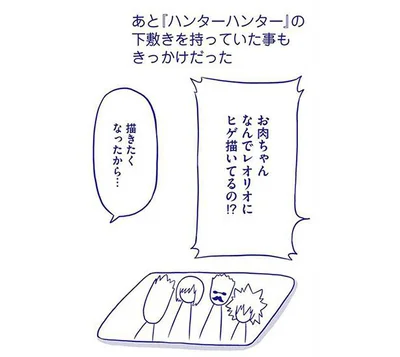 あと『ハンターハンター』の
下敷きを持っていた事も
きっかけだった
お肉ちゃん
なんでレオリオに
ヒゲ描いてるの!?
描きたく
なったから…